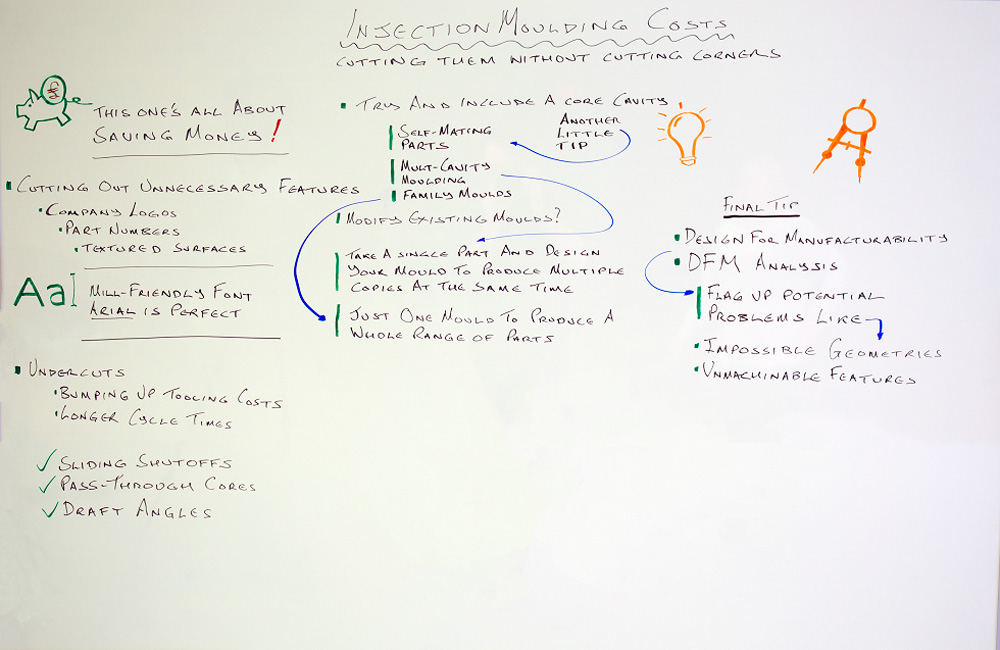 Injection Moulding Costs
Cutting Them Without Cutting Corners
£
This One's All About
Saving Money!
Cutting Out Unnecessary Features
Company Logos
Part Numbers
Textured Surfaces
Aa
Mill-Friendly Font
Arial is Perfect
Undercuts
Bumping Up Tooling Costs
Longer Cycle Times
✓ Sliding Shutoffs
✓ Pass-Through Cores
✓ Draft Angles
Try And Include A Core Cavity
Self-Mating
Parts
Another
Little
Tip
Mult-Cavity
Moulding
Family Moulds
Modify Existing Moulds?
Take A Single Part And Design
Your Mould To Produce Multiple
Copies At The Same Time
Just One Mould To Produce A
Whole Range of Parts
Final Tip
Design For Manufacturability
DFM Analysis
Flag Up Potential
Problems Like
Impossible Geometries
Unmachinable Features